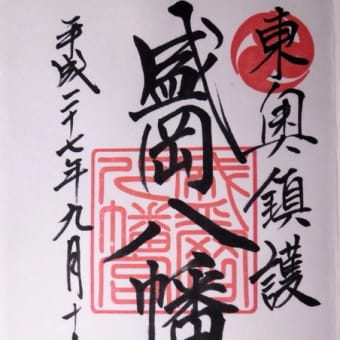 東奥鎮護
盛岡八幡
平成二十七年九月十